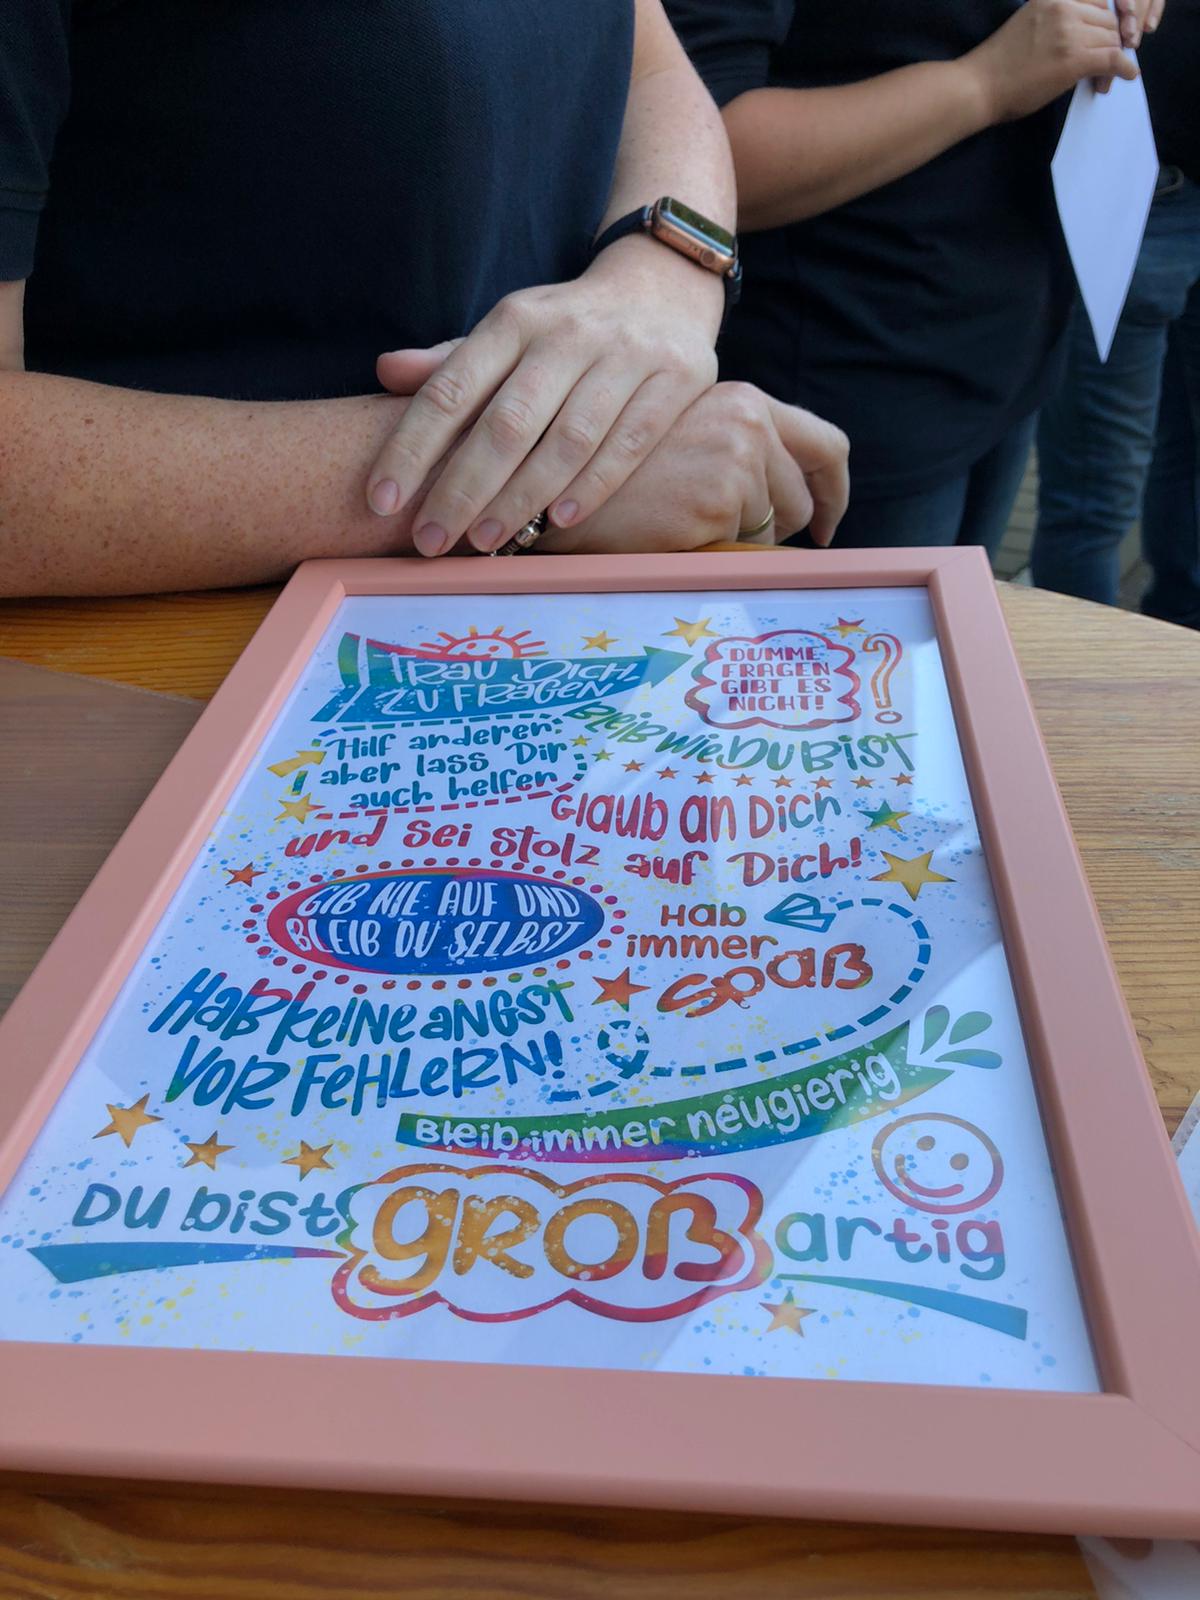 TRAU DICH
ZU FRAGEN
DUMME
FRAGEN
GIBT ES
NICHT!
?
Hilf anderen,
aber lass Dir
auch helfen
Bleib wie DU BIST
Glaub an Dich
und sei stolz auf Dich!
GIB NIE AUF UND
BLEIB DU SELBST
Hab
immer
Spaß
Hab keine Angst
vor Fehlern!
Bleib immer neugierig
Du bist großartig